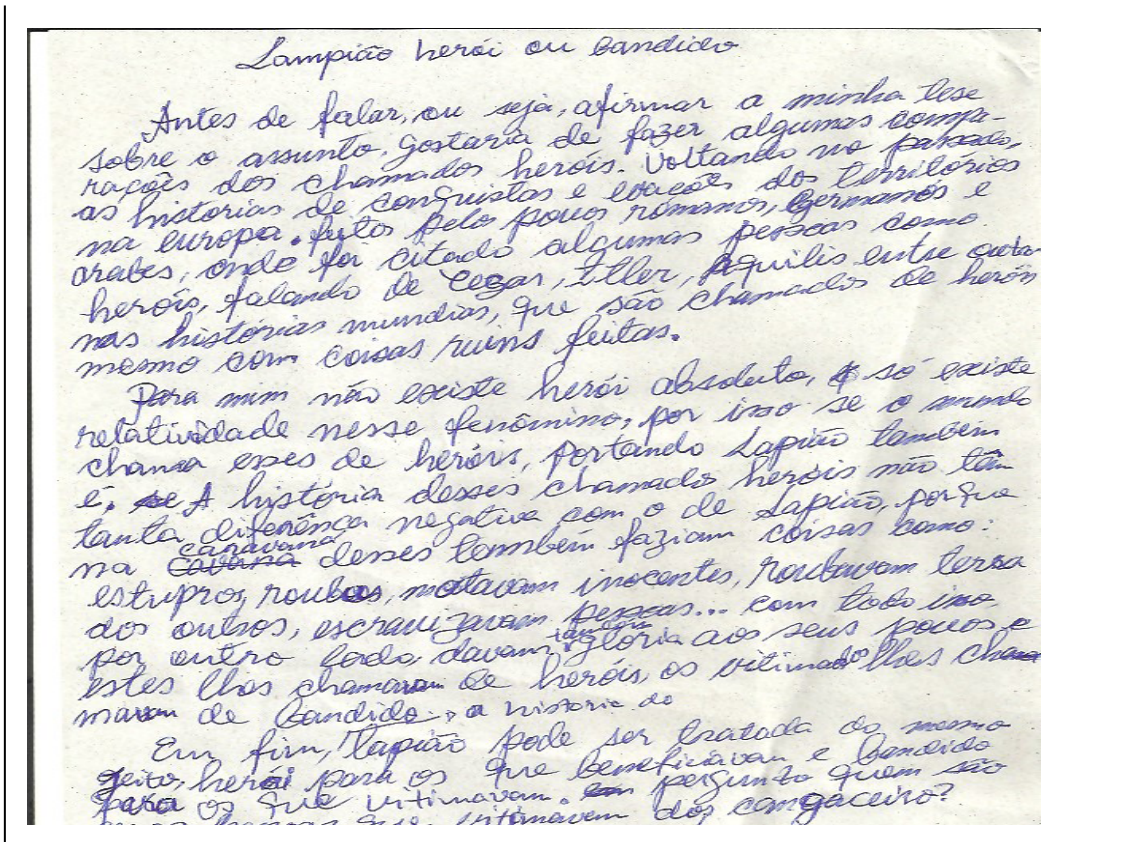 Lampião herói ou bandido
Antes de falar, ou seja, afirmar a minha tese
sobre o assunto. gostaria de fazer algumas compa-
rações dos chamados heróis. Voltando no passado,
as historias de conquistas e dos territórios
na europa. feitos pelo povos romanos, germanos e
arabes, onde foi citado algumas pessoas como
heróis, falando de Cezar, Itler, Aquilis entre outros
nas histórias mundias, que são chamados de heróis
mesmo com coisas ruins feitas.
Para mim não existe herói absoluto, só existe
relatividade nesse fenômino, por isso se o mundo
chama esses de heróis, Portando Lapião também
é. A história desses chamados heróis não têm
tanta diferênça negativa com o de Lapião, porque
na caravana desses também faziam coisas como:
estupros, roubos, matavam inocentes, roubavam terra
dos outros, escravizavam pessoas... com todo isso
por outro lado, davam glória aos seus povos e
estes lhos chamavam de heróis, os vitimados lhes cha
mavam de bandido, a historia do
Em fim, lapião pode ser tratada do mesmo
jeito, herói para os que beneficiavam e bandido
para os que vitimavam. pergunto quem são
vitimavam dos cangaceiro?